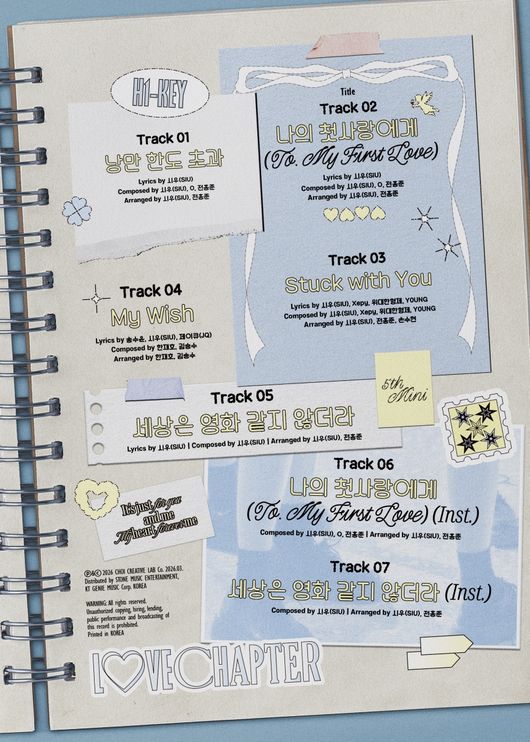 H1-KEY
Track 01
낭만 한도 초과
Lyrics by 시우(SIU)
Composed by 시우(SIU), O, 전홍준
Arranged by 시우(SIU), 전홍준
Title
Track 02
나의 첫사랑에게
(To. My First Love)
Lyrics by 시우(SIU)
Composed by 시우(SIU), O, 전홍준
Arranged by 시우(SIU), 전홍준
Track 03
Stuck with You
Lyrics by 시우(SIU), Xepy, 위대한형제, YOUNG
Composed by 시우(SIU), Xepy, 위대한형제, YOUNG
Arranged by 시우(SIU), 전홍준, 손수현
Track 04
My Wish
Lyrics by 송수윤, 시우(SIU), 제이큐(JQ)
Composed by 한재호, 김승수
Arranged by 한재호, 김승수
5th
Mini
Track 05
세상은 영화 같지 않더라
Lyrics by 시우(SIU) | Composed by 시우(SIU) | Arranged by 시우(SIU), 전홍준
Track 06
나의 첫사랑에게
(To. My First Love) (Inst.)
Composed by 시우(SIU), O, 전홍준 | Arranged by 시우(SIU), 전홍준
It's just for you
and me
My heart forever me
Track 07
세상은 영화 같지 않더라 (Inst.)
Composed by 시우(SIU) | Arranged by 시우(SIU), 전홍준
ⓟ&ⓒ 2026 CHOI CREATIVE LAB Co. 2026.03.
Distributed by STONE MUSIC ENTERTAINMENT,
KT GENIE MUSIC Corp. KOREA
WARNING: All rights reserved.
Unauthorized copying, hiring, lending,
public performance and broadcasting of
this record is prohibited.
Printed in KOREA
LOVECHAPTER